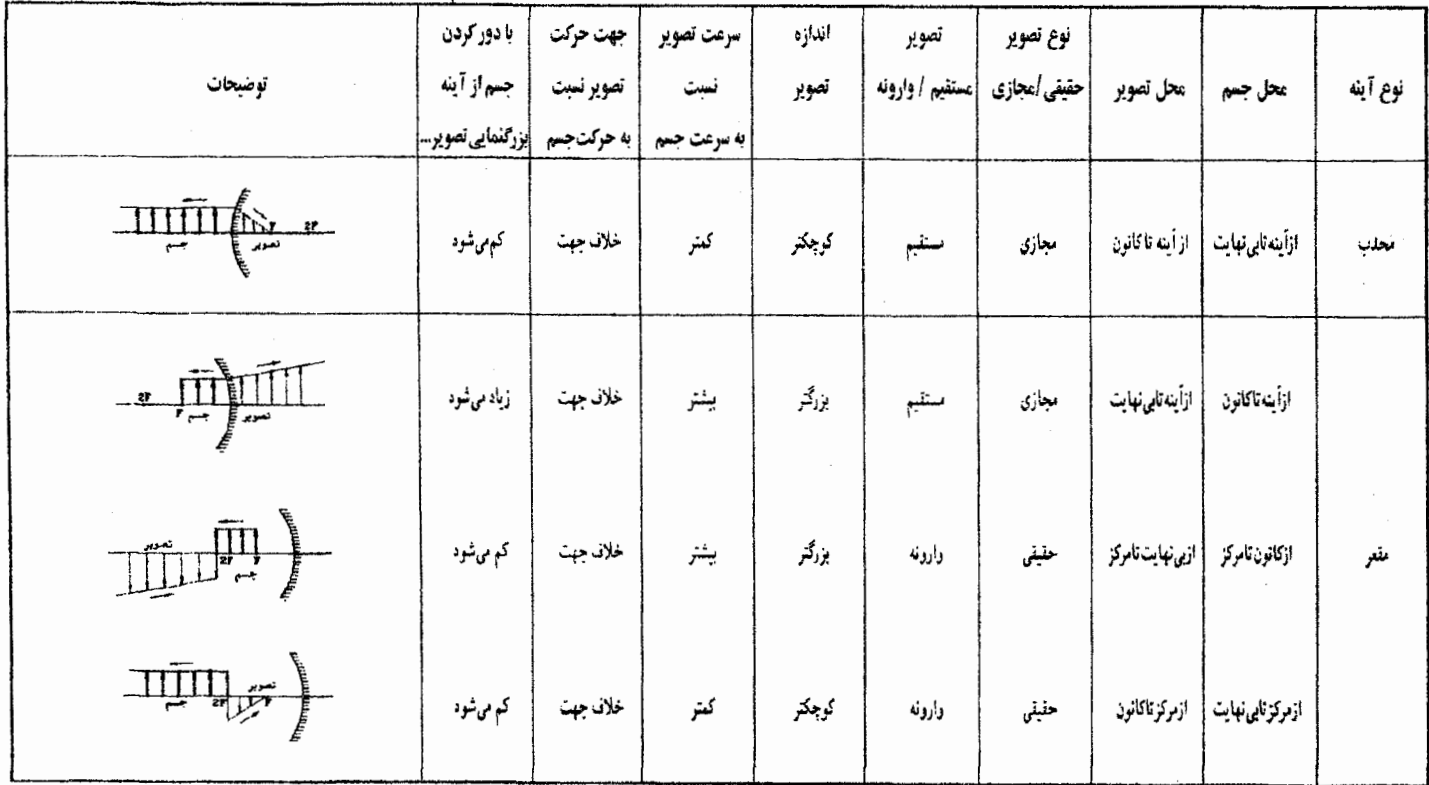 نوع آینه
محل جسم
محل تصویر
نوع تصویر
حقیقی/مجازی
تصویر
مستقیم / وارونه
اندازه
تصویر
سرعت تصویر
نسبت
به سرعت جسم
جهت حرکت
تصویر نسبت
به حرکت جسم
با دور کردن
جسم از آینه
بزرگنمایی تصویر...
توضیحات
محدب
ازآینه تابی نهایت
از آینه تا کانون
مجازی
مستقیم
کوچکتر
کمتر
خلاف جهت
کم می شود
جسم
تصویر
F
2F
ازآینه تاکانون
ازآینه تابی نهایت
مجازی
مستقیم
بزرگتر
بیشتر
خلاف جهت
زیاد می شود
2F
F
جسم
تصویر
مقعر
ازکانون تامرکز
ازبی نهایت تامرکز
حقیقی
وارونه
بزرگتر
بیشتر
خلاف جهت
کم می شود
تصویر
2F
F
جسم
ازمرکزتابی نهایت
ازمرکزتاکانون
حقیقی
وارونه
کوچکتر
کمتر
خلاف جهت
کم می شود
جسم
2F
تصویر
F